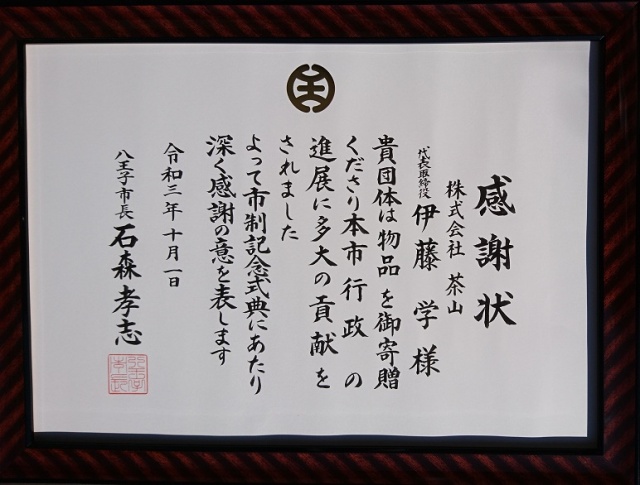 感謝状
株式会社 茶山
代表取締役 伊藤 学 様
貴団体は物品を御寄贈
くださり本市行政の
進展に多大の貢献を
されました
よって市制記念式典にあたり
深く感謝の意を表します
令和三年十月一日
八王子市長 石森孝志